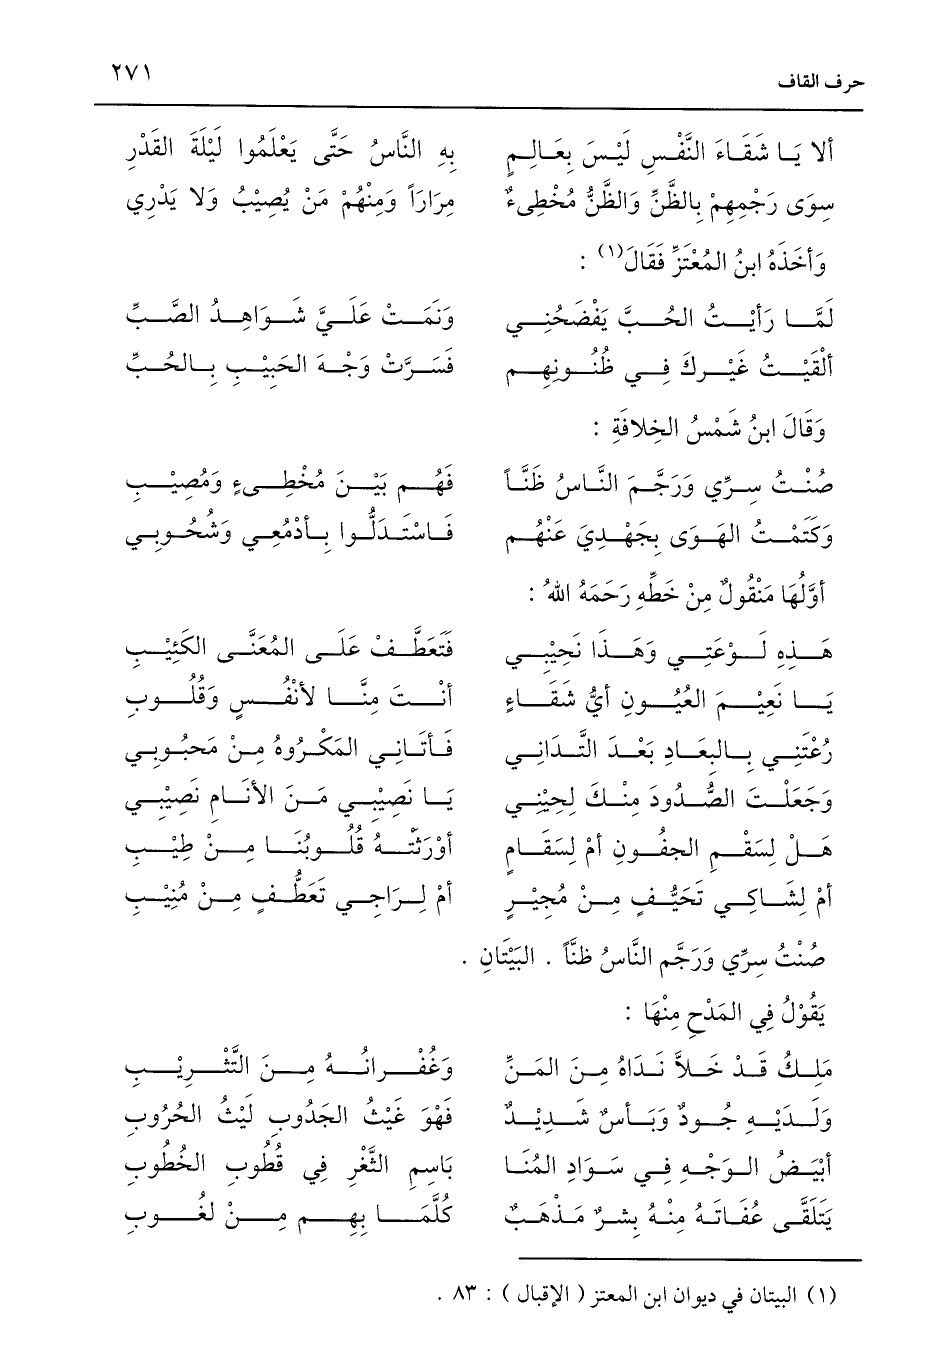 حرف القاف ٢٧١
ألا يَا شَقَاءَ النَّفْسِ لَيْسَ بِعَالِمٍ بِهِ النَّاسُ حَتَّى يَعْلَمُوا لَيْلَةَ القَدْرِ
سِوَى رَجْمِهِمْ بِالظَّنِّ وَالظَّنُّ مُخْطِىءٌ مِرَارَاً وَمِنْهُمْ مَنْ يُصِيْبُ وَلا يَدْرِي
وَأَخَذَهُ ابنُ المُعْتَزِّ فَقَالَ(١) :
لَمَّا رَأَيْتُ الحُبَّ يَفْضَحُنِي وَنَمَتْ عَلَيَّ شَوَاهِدُ الصَّبِّ
أَلْقَيْتُ غَيْرَكَ فِي ظُنُونِهِم فَسَتَرْتْ وَجْهَ الحَبِيْبِ بِالحُبِّ
وَقَالَ ابنُ شَمْسُ الخِلافَةِ :
صُنْتُ سِرِّي وَرَجَّمَ النَّاسُ ظَنَّاً فَهُم بَيْنَ مُخْطِىءٍ وَمُصِيْبِ
وَكَتَمْتُ الهَوَى بِجَهْدِيَ عَنْهُم فَاسْتَدَلُّوا بِأَدْمُعِي وَشُحُوبِي
أوَّلُهَا مَنْقُولٌ مِنْ خَطِّهِ رَحَمَهُ اللهُ :
هَذِهِ لَوْعَتِي وَهَذَا نَحِيْبِي فَتَعَطَّفْ عَلَى المُعَنَّى الكَئِيْبِ
يَا نَعِيْمَ العُيُونِ أَيُّ شَقَاءٍ أَنْتَ مِنَّا لأَنْفُسٍ وَقُلُوبِ
رُعْتِنِي بِالبَعَادِ بَعْدَ التَّدَانِي فَأَتَانِي المَكْرُوهُ مِنْ مَحْبُوبِي
وَجَعَلْتَ الصُّدُودَ مِنْكَ لِحِيْنِي يَا نَصِيْبِي مَنَ الأَنَامِ نَصِيْبِي
هَلْ لِسَقْمِ الجفُونِ أَمْ لِسَقَامٍ أَوْرَثَتْهُ قُلُوبُنَا مِنْ طِيْبِ
أَمْ لِشَاكِي تَحَيُّفٍ مِنْ مُجِيْرٍ أَمْ لِرَاجِي تَعَطُّفٍ مِنْ مُنِيْبِ
صُنْتُ سِرِّي وَرَجَّم النَّاسُ ظَنَّاً . البَيْتَانِ .
يَقُوْلُ فِي المَدْحِ مِنْهَا :
مَلِكُ قَدْ خَلاَّ نَدَاهُ مِنَ المَنِّ وَغُفْرَانُهُ مِنَ التَّثْرِيْبِ
وَلَدَيْهِ جُودٌ وَبَأْسٌ شَدِيْدٌ فَهْوَ غَيْثُ الجَدُوبِ لَيْثُ الحُرُوبِ
أَبْيَضُ الوَجْهِ فِي سَوَادِ المُنَا بَاسِمِ الثَّغْرِ فِي قُطُوبِ الخطُوبِ
يَتَلَقَّى عُفَاتَهُ مِنْهُ بِشرٌ مَذْهَبٌ كُلَّمَا بِهِم مِنْ لغُوبِ
(١) البيتان في ديوان ابن المعتز ( الإقبال ) : ٨٣ .